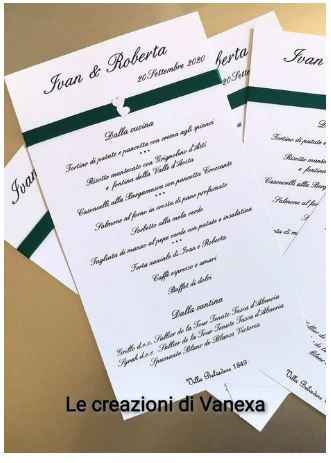 Ivan & Roberta
20 Settembre 2020
Dalla cucina
Tortino di patate e pancetta con crema agli spinaci
***
Risotto mantecato con Grignolino d'Asti
e fontina della Valle d'Aosta
Casoncelli alla Bergamasca con pancetta Croccante
***
Salmone al forno in crosta di pane profumato
Sorbetto alla mela verde
***
Tagliata di manzo al pepe verde con patate e insalatina
***
Torta nuziale di Ivan e Roberta
Caffè espresso e amari
Buffet di dolci
Dalla cantina
Grillo d.o.c. Sallier de la Tour Tenute Tasca d'Almerita
Syrah d.o.c. Sallier de la Tour Tenute Tasca d'Almerita
Spumante Blanc de Blancs Victoria
Villa Belvedere 1849
Le creazioni di Vanexa